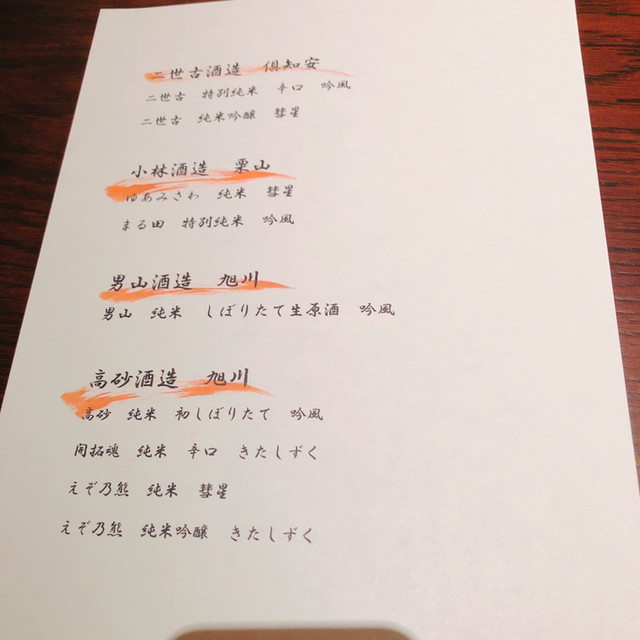 二世古酒造　倶知安
二世古　特別純米　辛口　吟風
二世古　純米吟醸　彗星
小林酒造　栗山
ゆあみさわ　純米　彗星
まる田　特別純米　吟風
男山酒造　旭川
男山　純米　しぼりたて生原酒　吟風
高砂酒造　旭川
高砂　純米　初しぼりたて　吟風
開拓魂　純米　辛口　きたしずく
えぞ乃熊　純米　彗星
えぞ乃熊　純米吟醸　きたしずく